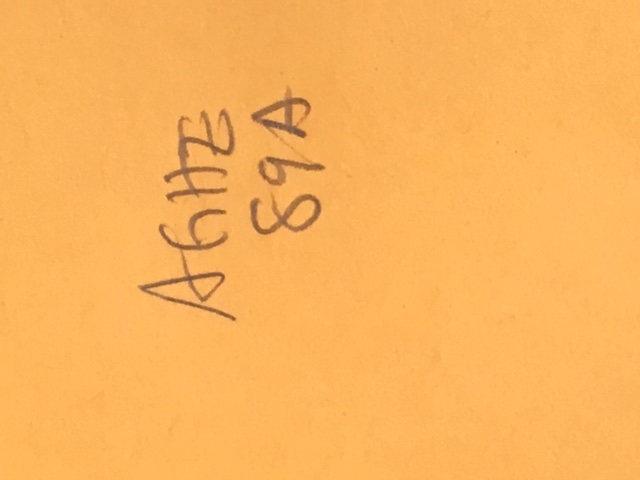 AGHE
89A